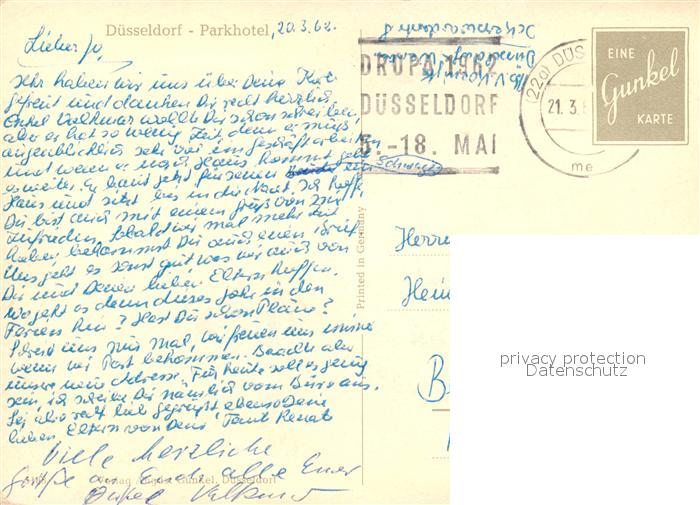 Düsseldorf - Parkhotel, 20.3.62.
Lieber Jo,
Sehr haben wir uns über Deine Karte
gefreut und danken Dir recht herzlich
Onkel Volkmar wollte Dir schon schreiben,
aber er hat so wenig Zeit, denn er muß
augenblicklich sehr viel im Geschäft arbeiten
und wenn er nach Haus kommt geht
es weiter. Er baut jetzt für seinen Schwager ein
Haus und sitzt bis in die Nacht. Ich hoffe
Du bist auch mit einem Gruß von mir
zufrieden, sobald wir mal mehr Zeit
haben bekommst Du auch einen Brief.
Uns geht es sonst gut was wir auch von
Dir und Deinen lieben Eltern hoffen.
Wo geht es denn dieses Jahr in den
Ferien hin? Hast Du schon Pläne?
Schreib uns mal, wir freuen uns immer
wenn wir Post bekommen. Beachte aber
unsere neue Adresse. Für heute soll es genug
sein ich schreibe Dir nämlich vom Büro aus.
Sei also recht lieb gegrüßt ebenso Deine
lieben Eltern von Deiner Tante Renate
Viele herzliche
Grüße an Euch alle Euer
Onkel Volkmar
Verlag August Gunkel, Düsseldorf
Printed in Germany
Düsseldorf
DRUPA 1962
DÜSSELDORF
5.-18. MAI
(22a) DÜS
21.3.6
me
EINE
Gunkel
KARTE
Herrn
Hein
B
privacy protection
Datenschutz